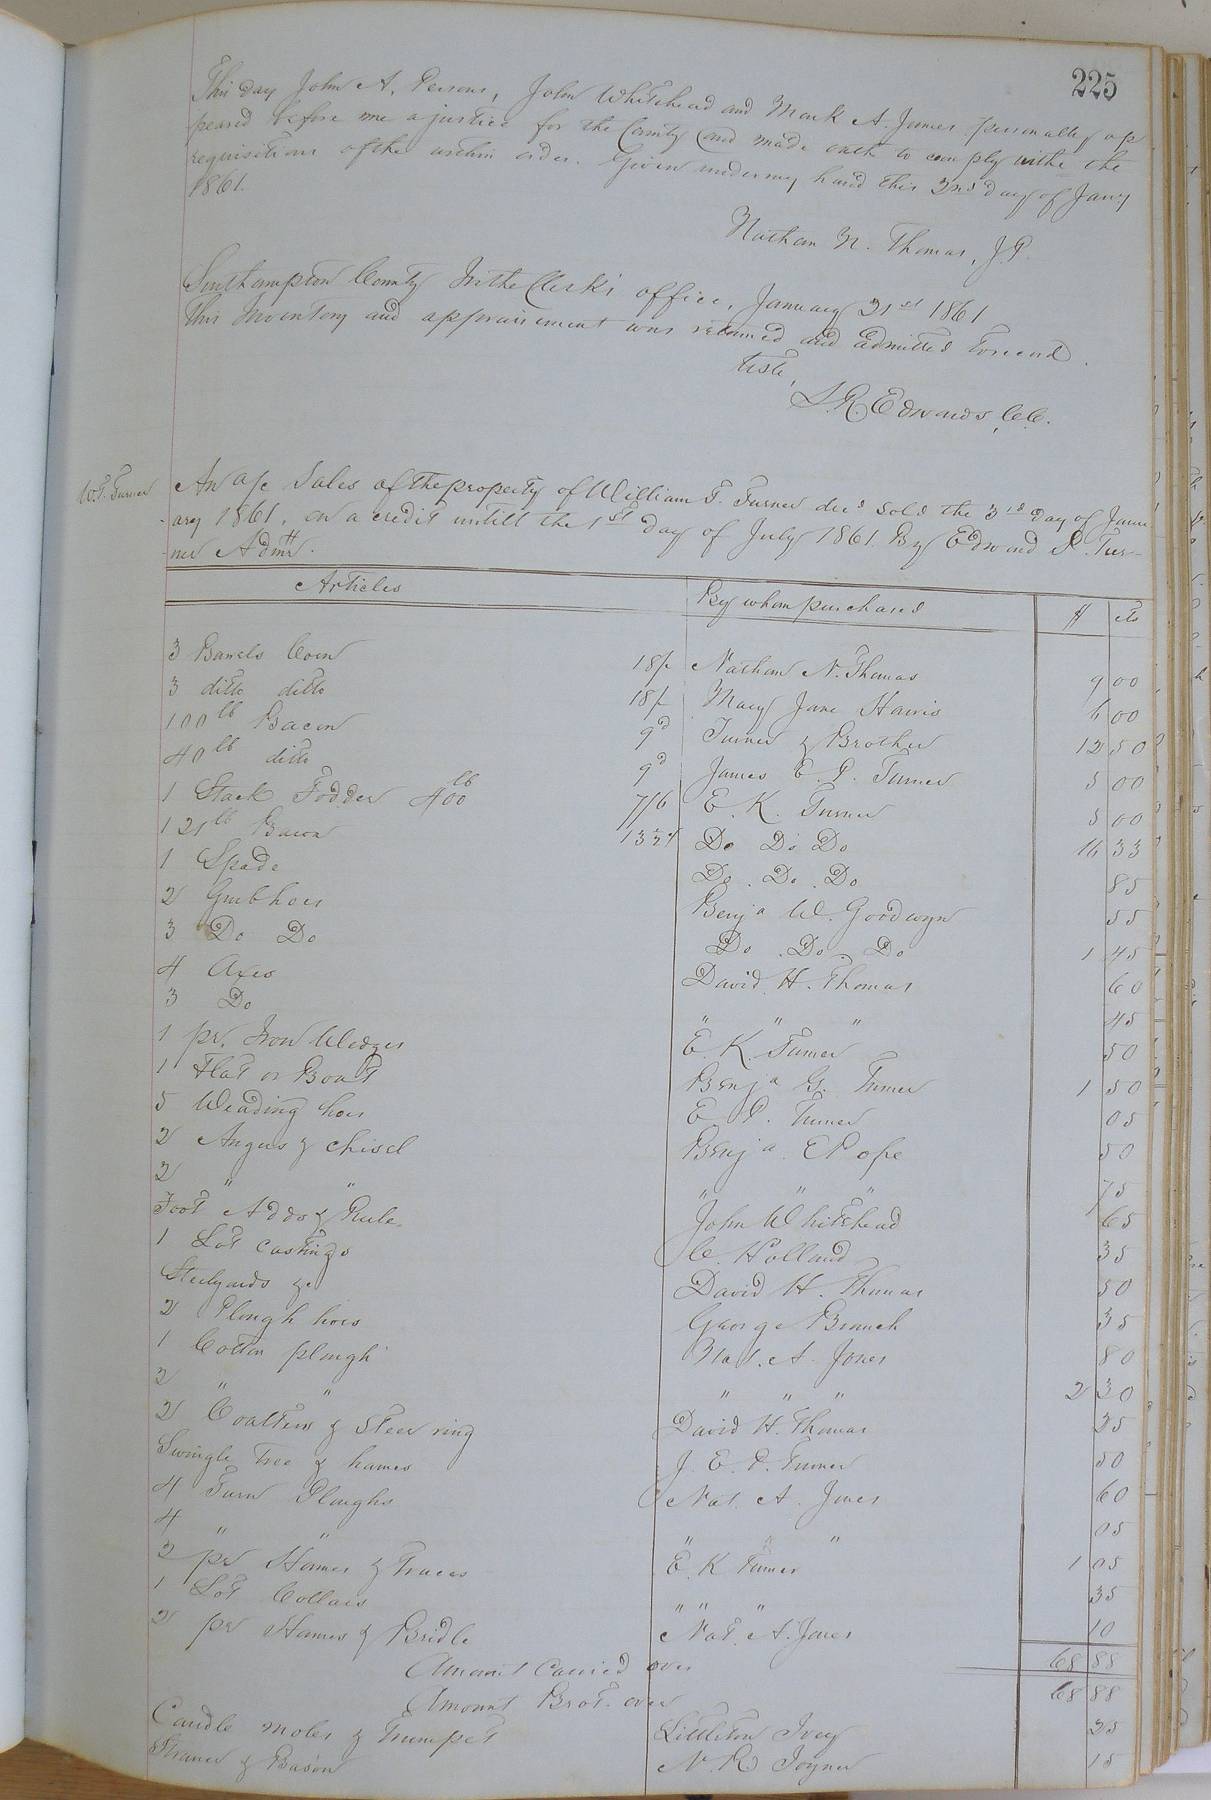 225
This day John A. Persons, John Whitehead and Mark A. James personally ap
peared before me a justice for the County and made oath to comply withe the
requisitions of the within order. Given under my hand this 2nd day of Jany
1861.
Nathan N. Thomas, J.P.
Southampton County In the Clerk's office, January 21st 1861
This Inventory and appraisement was returned and admitted to record.
Teste,
L.R. Edwards, C.C.
W.T. Turner
An a/c Sales of the property of William T. Turner decd sold the 3rd day of Janu
ary 1861, on a credit untill the 1st day of July 1861 By Edward K. Tur-
ner Admr.
Articles By whom purchased $ cts
3 Barrels Corn 18/ Nathan N. Thomas 9 00
3 ditto ditto 18/ Mary Jane Harris 6 00
100 lb Bacon 9d Turner & Brother 12 50
40 lb ditto 9d James E. P. Turner 5 00
1 Stack Fodder 400 lb 7/6 E. K. Turner 5 00
121 lb Bacon 13 1/2 Do Do Do 16 33
1 Spade Do. Do. Do 85
2 Grubhoes Benja W. Goodwyn 55
3 Do Do Do. Do. Do 1 45
4 Axes David H. Thomas 60
3 Do " " " 45
1 pr. Iron Wedges E. K. Turner 50
1 Flat or Boat Benja G. Turner 1 50
5 Weading hoes E P. Turner 05
2 Augus & chisel Benja. E Pope 50
2 " " " " " 75
Foot Adds & Rule John Whitehead 65
1 Lot castings C. Holland 35
Stilyards &c David H. Thomas 50
2 Plough hoes George Branch 35
1 Cotton plough Nat. A. Jones 80
2 " " " " " 2 30
2 Coalters & Steer ring David H. Thomas 35
Swingle Tree & hames J. E. P. Turner 50
4 Turn Ploughs Nat. A. Jones 60
4 " " " " " 05
2 pr Hames & Traces E. K Turner 1 05
1 Lot Collars " " " 35
2 pr Hames & Bridle Nat. A. Jones 10
Amount Carried over 68 88
Amount Brot. over 68 88
Candle moles & Trumpet Littleton Ivey 25
& Bason N. R Joyner 15